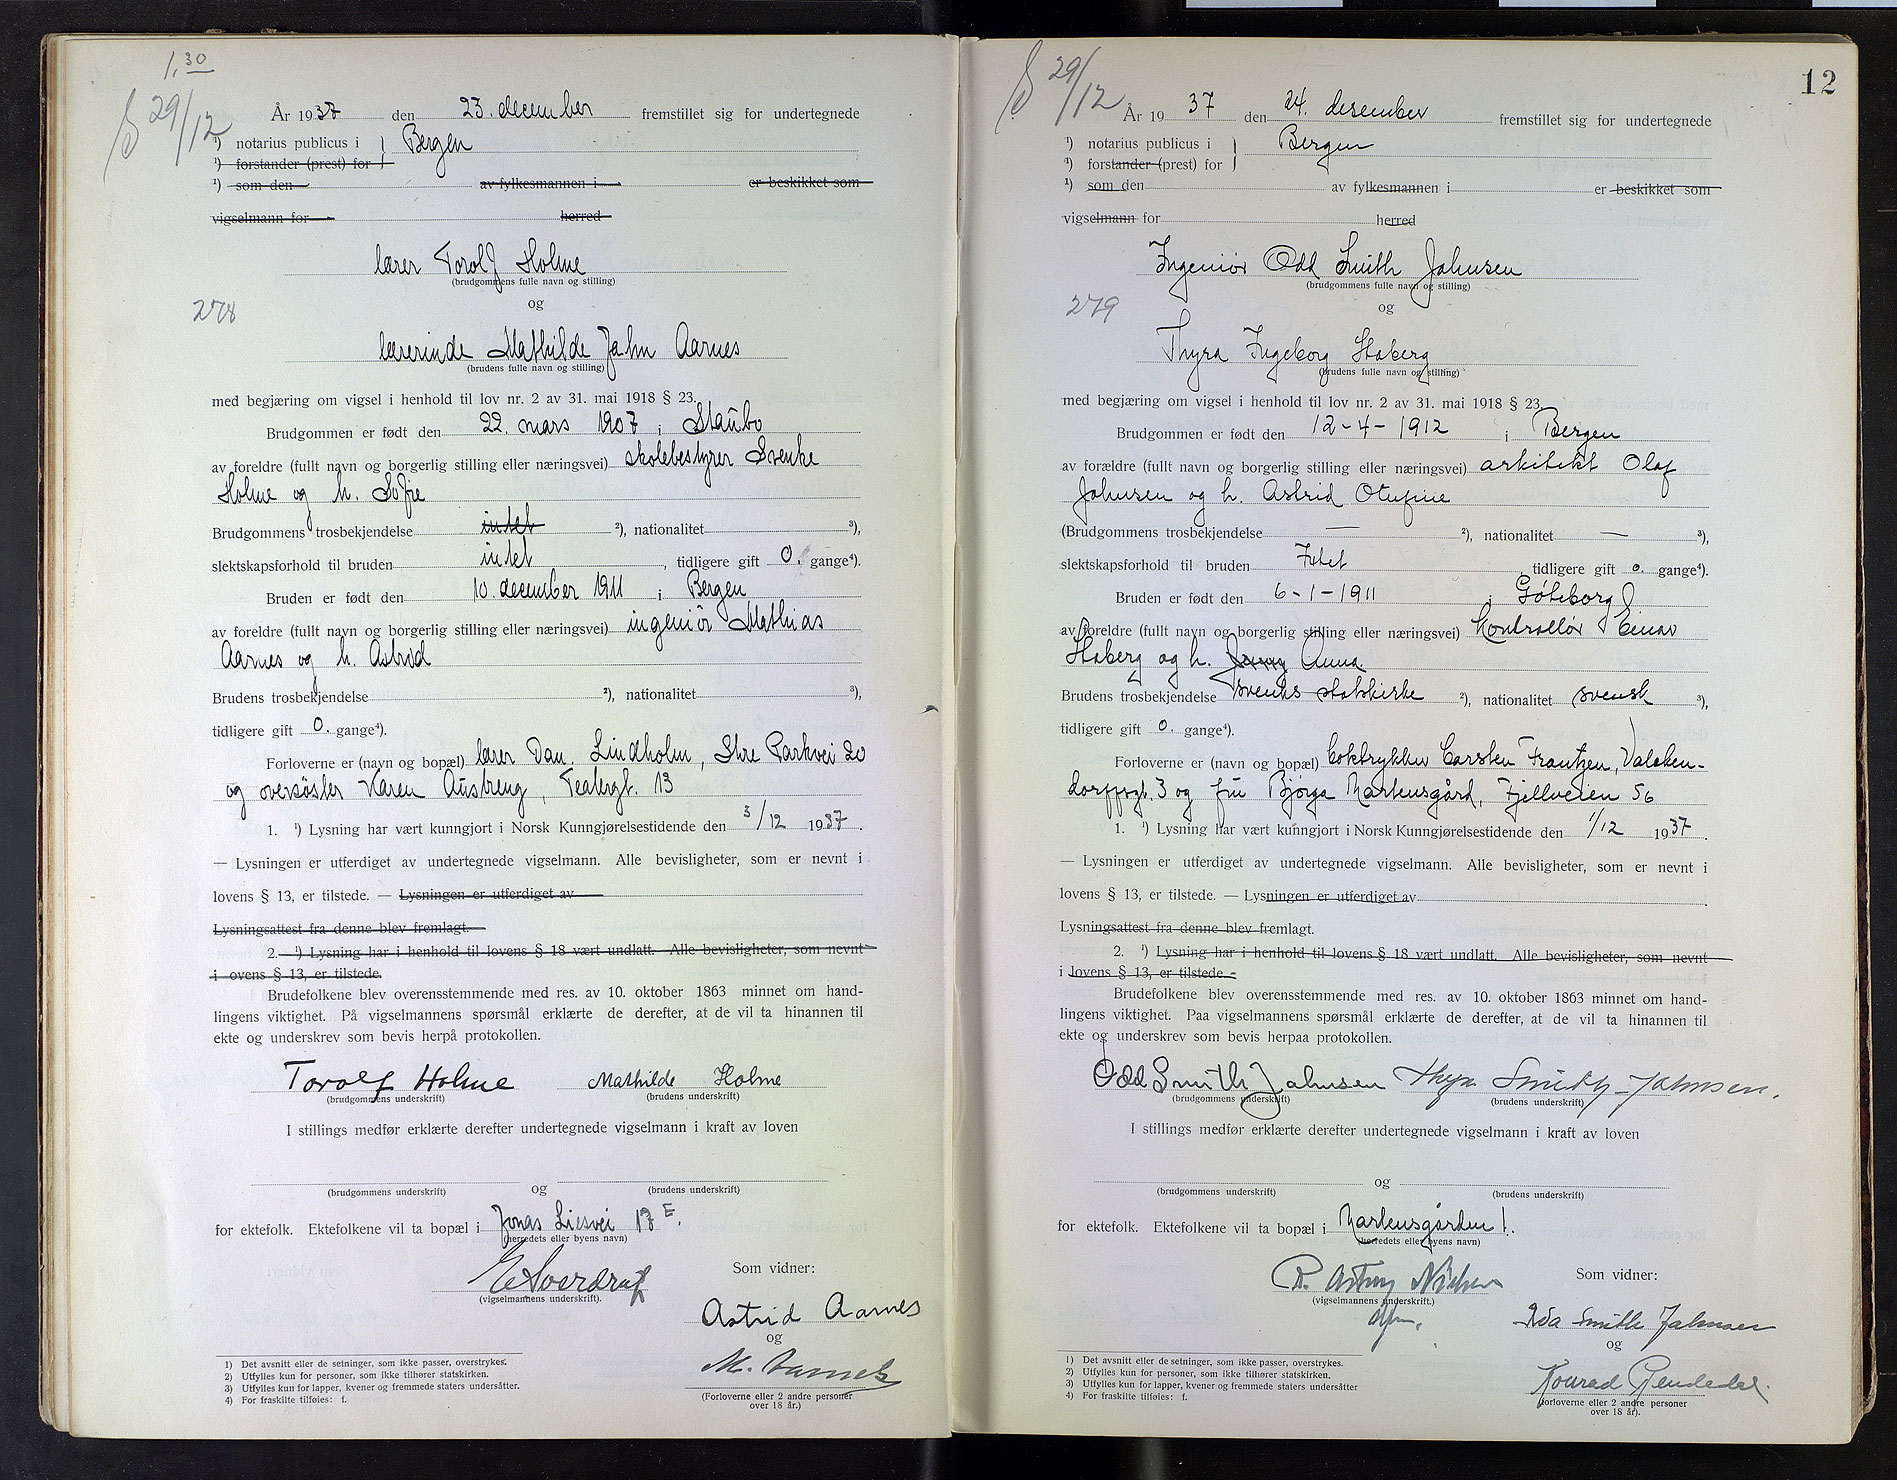 1.30
29/12
År 1937 den 23. december fremstillet sig for undertegnede
¹) notarius publicus i } Bergen
¹) forstander (prest) for }
¹) som den av fylkesmannen i er beskikket som
vigselmann for herred
lærer Torolf Holme
(brudgommens fulle navn og stilling)
og
278
lærerinde Mathilde Jahn Aarnes
(brudens fulle navn og stilling)
med begjæring om vigsel i henhold til lov nr. 2 av 31. mai 1918 § 23.
Brudgommen er født den 22. mars 1907 i Staubo
av foreldre (fullt navn og borgerlig stilling eller næringsvei) skolebestyrer Svenke
Holme og h. Sofie
Brudgommens trosbekjendelse intet ²), nationalitet ³),
slektskapsforhold til bruden intet, tidligere gift 0. gange⁴).
Bruden er født den 10. december 1911 i Bergen
av foreldre (fullt navn og borgerlig stilling eller næringsvei) ingeniör Mathias
Aarnes og h. Astrid
Brudens trosbekjendelse ²), nationalitet ³),
tidligere gift 0. gange⁴).
Forloverne er (navn og bopæl) lærer Dan. Lindholm, Stre Parkvei 20
og oversøster Karen Austreng, Teatergt. 13
1. ¹) Lysning har vært kunngjort i Norsk Kunngjørelsestidende den 3/12 1937.
— Lysningen er utferdiget av undertegnede vigselmann. Alle bevisligheter, som er nevnt i
lovens § 13, er tilstede. — Lysningen er utferdiget av
Lysningsattest fra denne blev fremlagt.
2. ¹) Lysning har i henhold til lovens § 18 vært undlatt. Alle bevisligheter, som nevnt
i ovens § 13, er tilstede.
Brudefolkene blev overensstemmende med res. av 10. oktober 1863 minnet om hand-
lingens viktighet. På vigselmannens spørsmål erklærte de derefter, at de vil ta hinannen til
ekte og underskrev som bevis herpå protokollen.
Torolf Holme Mathilde Holme
(brudgommens underskrift) (brudens underskrift)
I stillings medfør erklærte derefter undertegnede vigselmann i kraft av loven
og
(brudgommens underskrift) (brudens underskrift)
for ektefolk. Ektefolkene vil ta bopæl i Jonas Liesvei 17 E.
(herredets eller byens navn)
E Sverdrup
(vigselmannens underskrift).
Som vidner:
Astrid Aarnes
og
M. Aarnes
(Forloverne eller 2 andre personer
over 18 år.)
1) Det avsnitt eller de setninger, som ikke passer, overstrykes.
2) Utfylles kun for personer, som ikke tilhører statskirken.
3) Utfylles kun for lapper, kvener og fremmede staters undersåtter.
4) For fraskilte tilføies: f.
29/12
12
År 1937 den 24. desember fremstillet sig for undertegnede
¹) notarius publicus i } Bergen
¹) forstander (prest) for }
¹) som den av fylkesmannen i er beskikket som
vigselmann for herred
Ingeniør Odd Smith Jahnsen
(brudgommens fulle navn og stilling)
og
279
Thyra Ingeborg Staberg
(brudens fulle navn og stilling)
med begjæring om vigsel i henhold til lov nr. 2 av 31. mai 1918 § 23.
Brudgommen er født den 12-4-1912 i Bergen
av forældre (fullt navn og borgerlig stilling eller næringsvei) arkitekt Olaf
Jahnsen og h. Astrid Otufine
(Brudgommens trosbekjendelse — ²), nationalitet — ³),
slektskapsforhold til bruden Intet, tidligere gift 0. gange⁴).
Bruden er født den 6-1-1911 i Göteborg
av foreldre (fullt navn og borgerlig stilling eller næringsvei) Kontrollør Einar
Staberg og h. Jenny Anna.
Brudens trosbekjendelse svensk statskirke ²), nationalitet svensk ³),
tidligere gift 0. gange⁴).
Forloverne er (navn og bopæl) boktrykker Carsten Frantzen, Valcken-
dorffsgt. 3 og fru Bjørga Martensgård, Fjellveien 56
1. ¹) Lysning har vært kunngjort i Norsk Kunngjørelsestidende den 1/12 1937.
— Lysningen er utferdiget av undertegnede vigselmann. Alle bevisligheter, som er nevnt i
lovens § 13, er tilstede. — Lysningen er utferdiget av
Lysningsattest fra denne blev fremlagt.
2. ¹) Lysning har i henhold til lovens § 18 vært undlatt. Alle bevisligheter, som nevnt
i lovens § 13, er tilstede.
Brudefolkene blev overensstemmende med res. av 10. oktober 1863 minnet om hand-
lingens viktighet. Paa vigselmannens spørsmål erklærte de derefter, at de vil ta hinannen til
ekte og underskrev som bevis herpaa protokollen.
Odd Smith Jahnsen Thyra Smith-Jahnsen.
(brudgommens underskrift) (brudens underskrift)
I stillings medfør erklærte derefter undertegnede vigselmann i kraft av loven
og
(brudgommens underskrift) (brudens underskrift)
for ektefolk. Ektefolkene vil ta bopæl i Martensgården 1.
(herredets eller byens navn)
R. Nielsen
(vigselmannens underskrift.)
Som vidner:
Ida Smith Jahnsen
og
Konrad
(Forloverne eller 2 andre personer
over 18 år).
1) Det avsnitt eller de setninger, som ikke passer, overstrykes.
2) Utfylles kun for personer, som ikke tilhører statskirken.
3) Utfylles kun for lapper, kvener og fremmede staters undersåtter
4) For fraskilte tilføies: f.